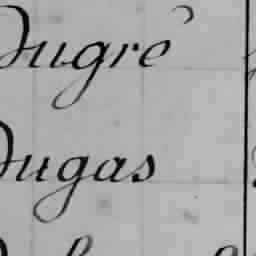 Dugré
Dugas